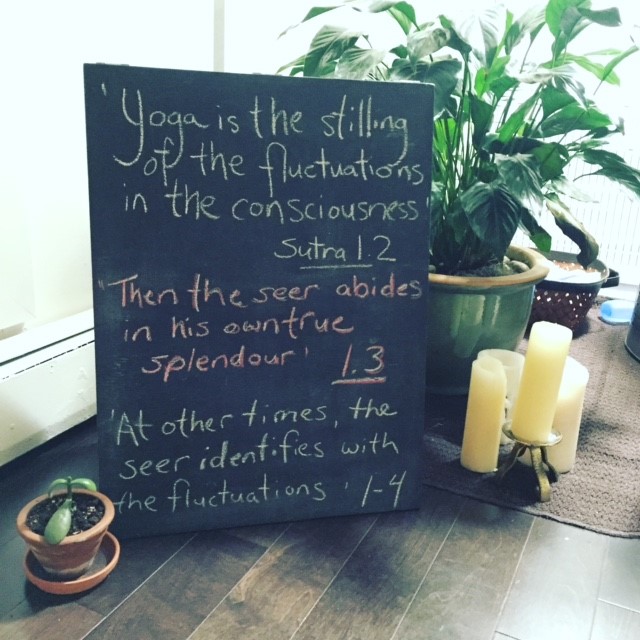 'Yoga is the stilling
of the fluctuations
in the consciousness'
Sutra 1.2
"Then the seer abides
in his own true
splendour' 1.3
'At other times, the
seer identifies with
the fluctuations' 1-4